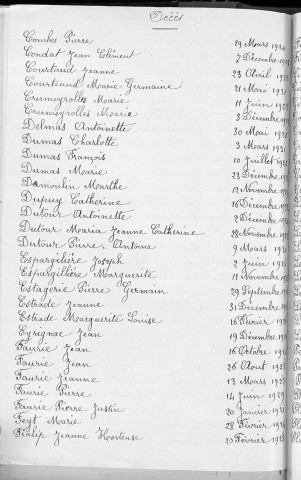 Décès
Combes Pierre 29 Mars 192
Condat Jean Clément 7 Décembre 19
Courtaud Jeanne 23 Avril 192
Courteaud Marie Germaine 21 Mai 192
Crumeyrolles Marie 11 Juin 19
Crumeyrolles Marie 3 Décembre 19
Delmas Antoinette 30 Mai 192
Dumas Charlotte 3 Mars 192
Dumas François 10 Juillet 192
Dumas Marie 28 Décembre 19
Dumoulin Marthe 12 Novembre 19
Dupuy Catherine 16 Décembre 19
Dutour Antoinette 2 Décembre 19
Dutour Maria Jeanne Catherine 28 Novembre 19
Dutour Pierre, Antoine 9 Mars 19
Espargilière Joseph 2 Juin 19
Espargilière Marguerite 11 Novembre 19
Estagerie Pierre Germain 29 Septembre 19
Estrade Jeanne 31 Décembre 19
Estrade Marguerite Louise 16 Février 19
Eyrignac Jean 19 Décembre 19
Faurie Jean 16 Octobre 19
Faurie Jean 26 Août 192
Faurie Jeanne 13 Mars 192
Faurie Pierre 14 Juin 192
Faurie Pierre Justin 20 Janvier 19
Feyt Marie 28 Février 19
Fialip Jeanne Hortense 20 Février 192